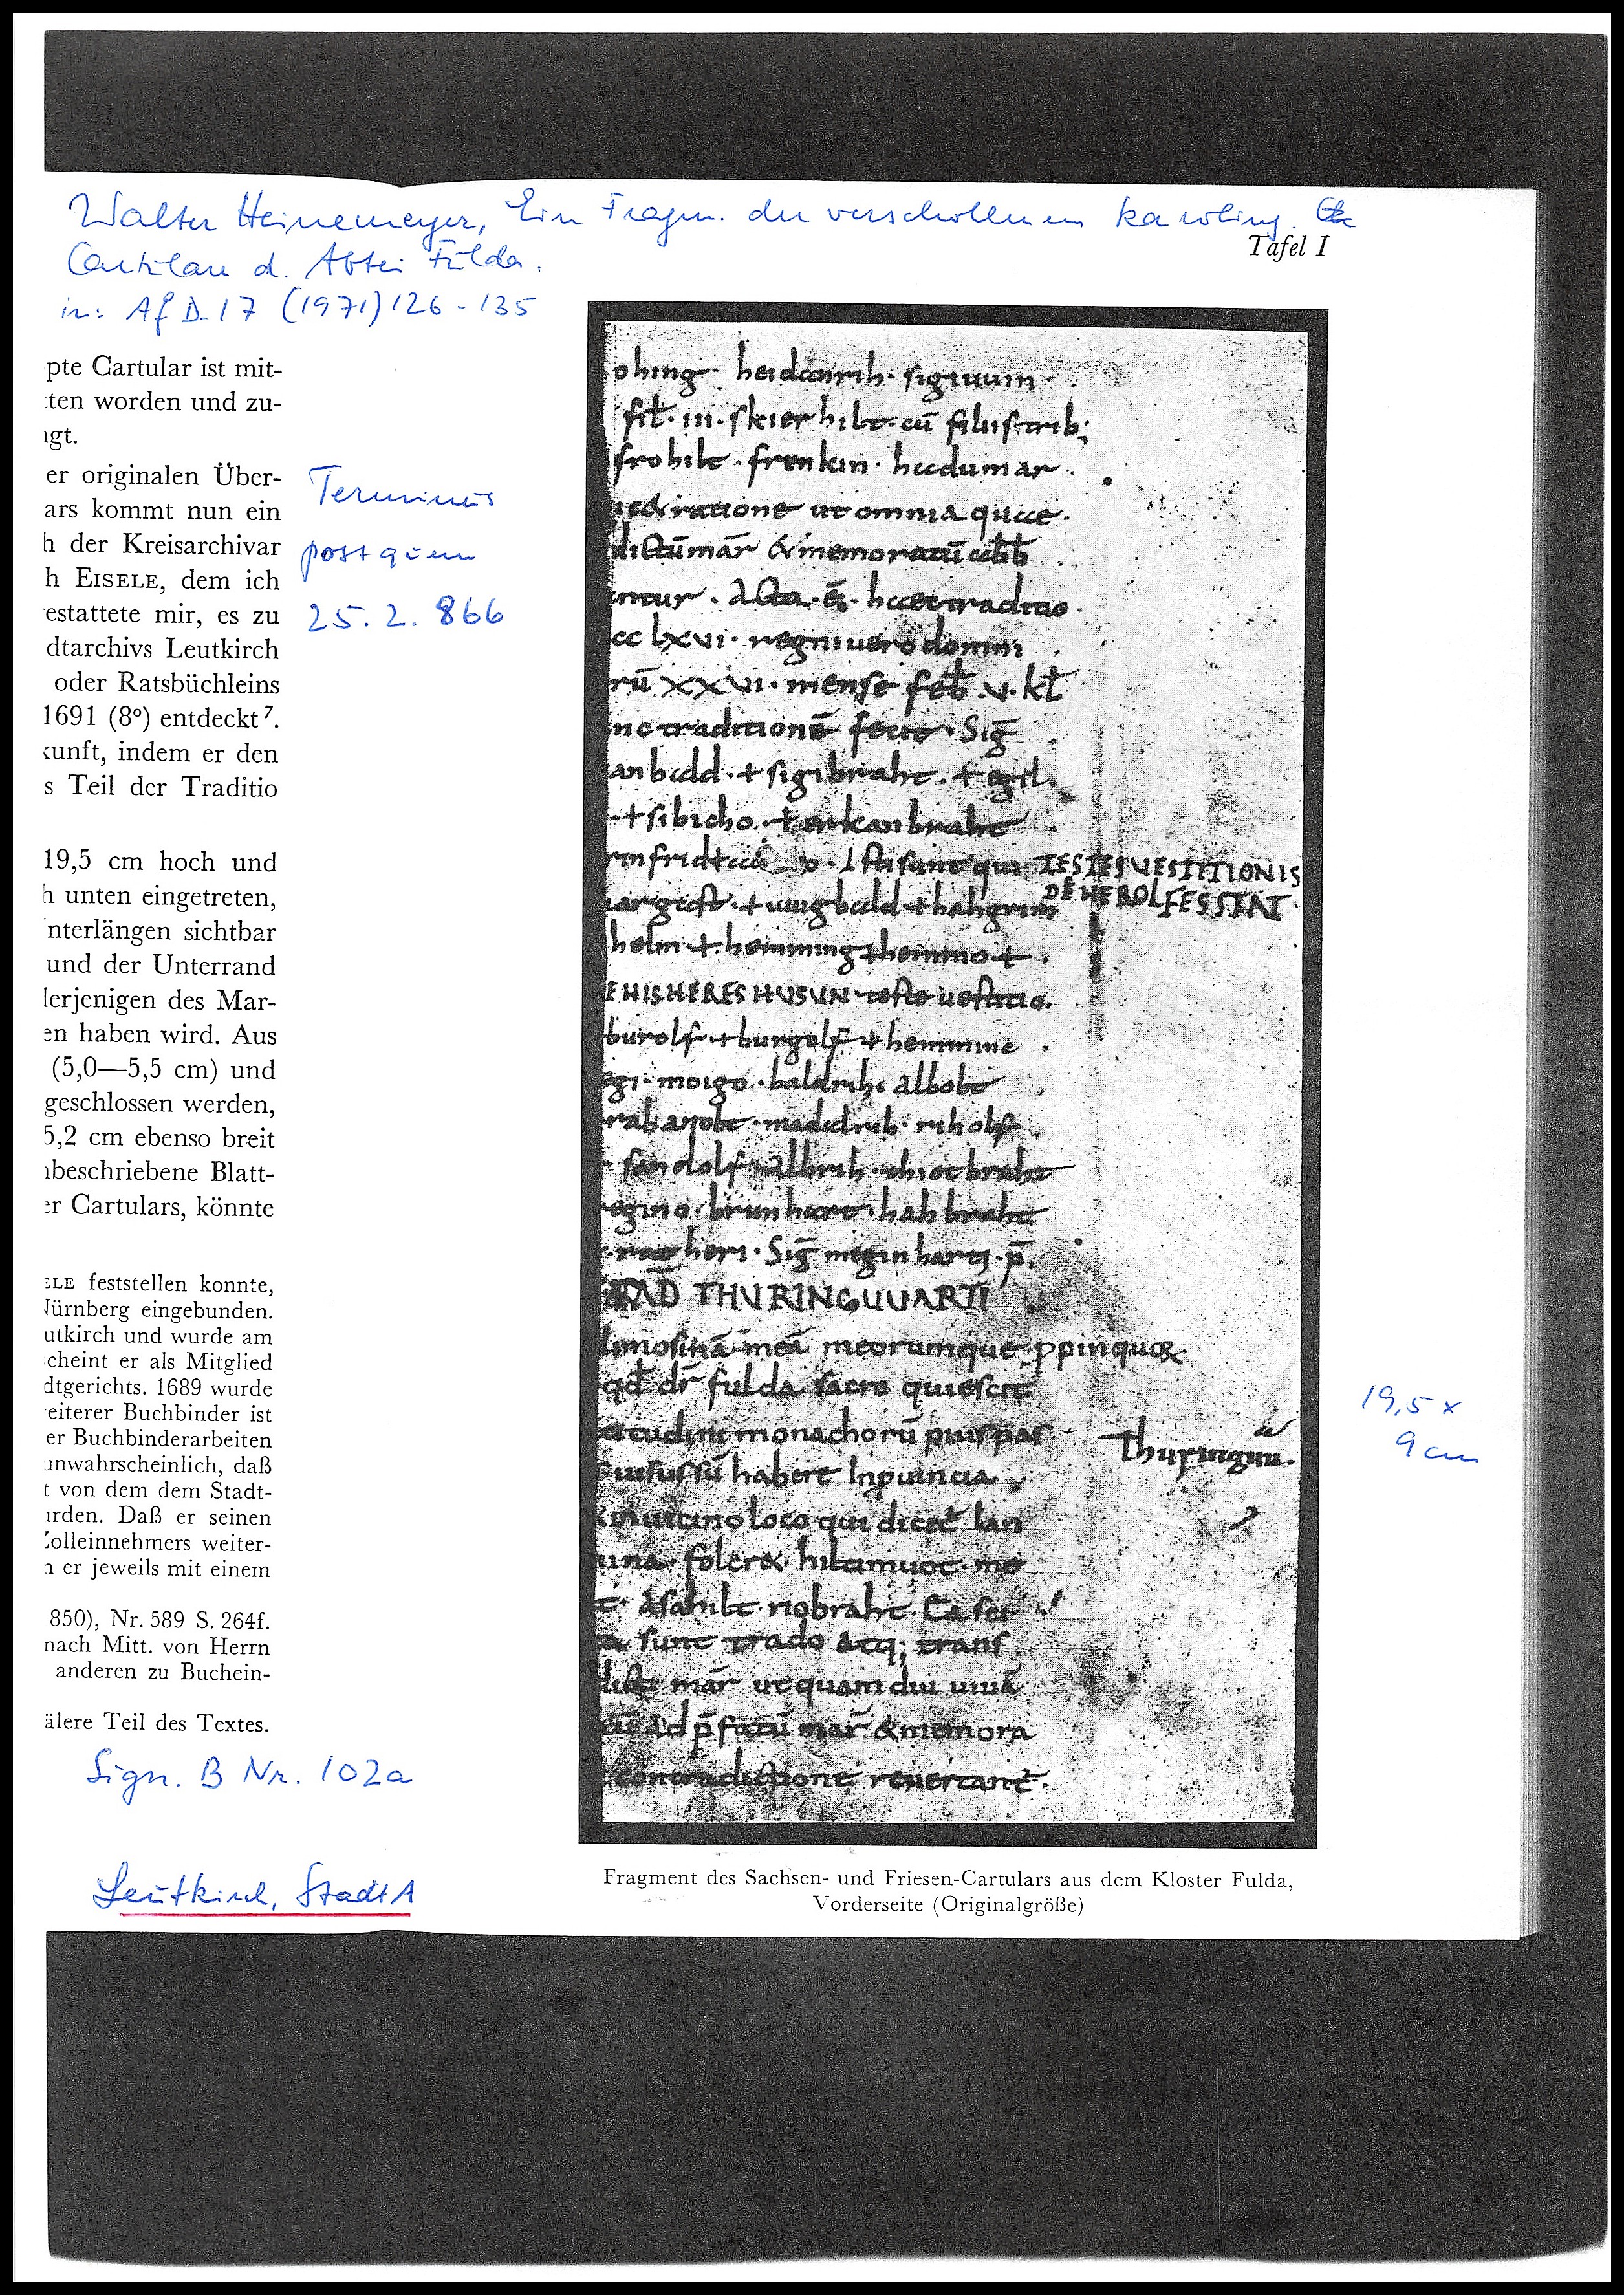 Walter Heinemeyer, Ein Fragm. der verschollenen karoling.
Cartulare d. Abtei Fulda.
in: AfD 17 (1971) 126-135
Tafel I
pte Cartular ist mit-
ten worden und zu-
gt.
er originalen Über-
ars kommt nun ein
h der Kreisarchivar
h EISELE, dem ich
estattete mir, es zu
dtarchivs Leutkirch
oder Ratsbüchleins
1691 (8º) entdeckt⁷.
unft, indem er den
s Teil der Traditio
19,5 cm hoch und
h unten eingetreten,
nterlängen sichtbar
und der Unterrand
lerjenigen des Mar-
en haben wird. Aus
(5,0—5,5 cm) und
geschlossen werden,
5,2 cm ebenso breit
beschriebene Blatt-
er Cartulars, könnte
ELE feststellen konnte,
Nürnberg eingebunden.
utkirch und wurde am
cheint er als Mitglied
dtgerichts. 1689 wurde
eiterer Buchbinder ist
er Buchbinderarbeiten
unwahrscheinlich, daß
t von dem dem Stadt-
urden. Daß er seinen
Zolleinnehmers weiter-
n er jeweils mit einem
850), Nr. 589 S. 264f.
nach Mitt. von Herrn
anderen zu Buchein-
älere Teil des Textes.
Terminus
post quem
25. 2. 866
Sign. B Nr. 102a
Leutkirch, StadtA
ohing · heidanrih · signum ·
fil̄ · III · skier hilt · cū filiis trib;
frohilt · frenkin · hadumar ·
ratione ut omnia quae ·
dictū mār & memoratū abb̄
entur · Acta · ē · haec traditio ·
cc lxvi · regni vero domni
rū xxvi · mense feb̄ · v · kl̄
nc traditionē fecit · Sig̅
anbald · + sigibraht · + egil ·
+ sibicho · + erkanbraht
Isti sunt qui TESTES VESTITIONIS
DE HEROLFESSTAT
argast · + uuigbald + hahgrim
helm + hemming + hemmo +
E HISHERESHUSUN teste uestitio.
burolf + burgolf + hemminc
gi · moigo · baldrih · albobt
rabanobt · madalrih · riholf
sandolf · albrih · thiotbraht
egino · brunhart · hahbraht
heri · Sig̅ megin hartj · p̄
TRAD̄ THURINGUUARTI
limosinā meā meorumque ppinquor
qd̄ dr̄ fulda sacro quiescit
monachorū
Thuringuu.
usussū habere In puincia
in uicino loco qui dicit̄ lan
una · folcrat
Asahilt nobraht · Ea
sunt trado atq; trans
dicto mār ut quam diu uiuā
ad p̄fatū mar̄ & memora
contradictione reuertant̄ ·
19,5 x
9 cm
Fragment des Sachsen- und Friesen-Cartulars aus dem Kloster Fulda,
Vorderseite (Originalgröße)